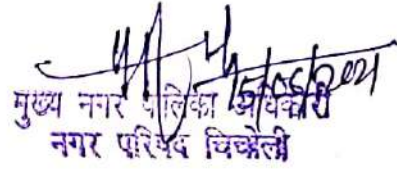 15/06/2021
मुख्य नगर पालिका अधिकारी
नगर परिषद चिचोली